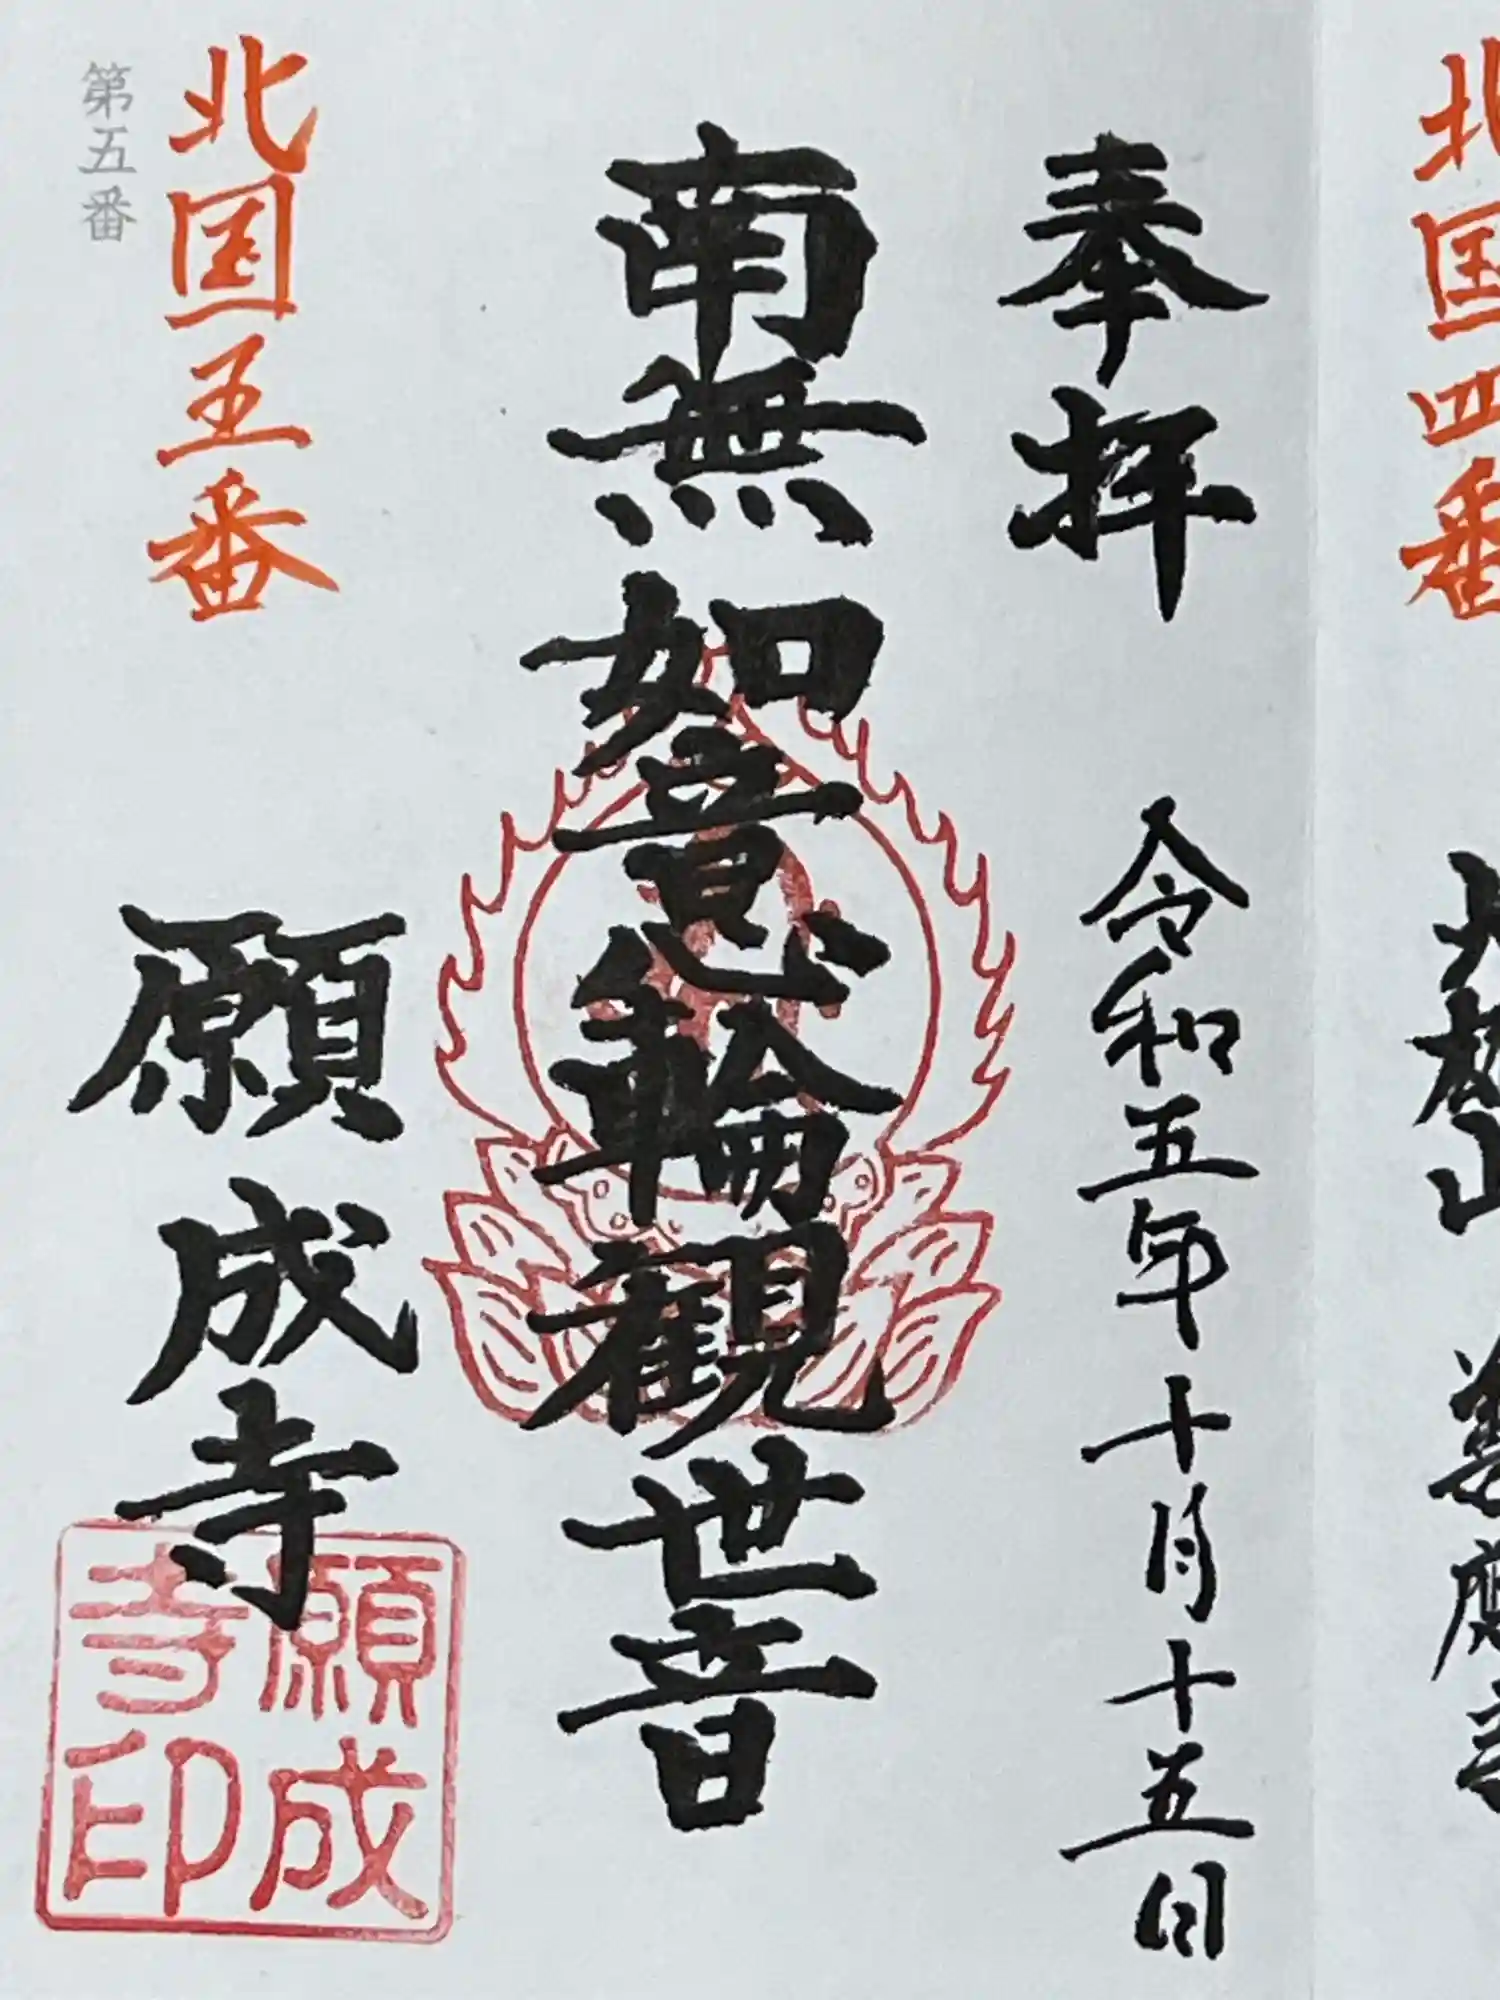 北国四番
奉拝
令和五年十月十五日
南無如意輪観世音
北国五番
第五番
願成寺
願成
寺印